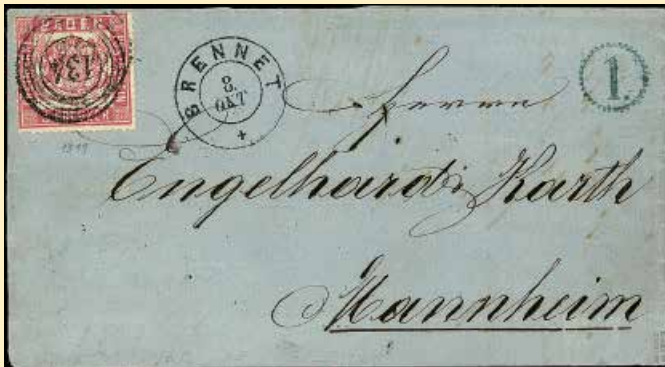 134
BRENNET
8.
OKT
1.
Herrn
Engelhard & Karth
Mannheim